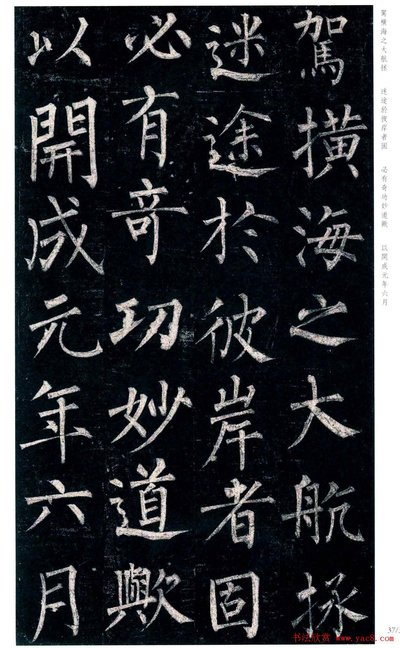 駕橫海之大航拯　迷途於彼岸者固　必有奇功妙道歟　以開成元年六月
駕橫海之大航拯
迷途於彼岸者固
必有奇功妙道歟
以開成元年六月
37/
书法欣赏
www.yac8.com